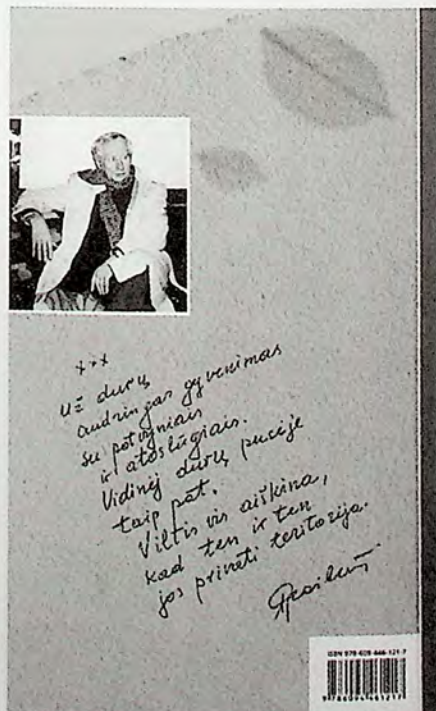 ***
Už durų
audringas gyvenimas
su potvyniais
ir atoslūgiais.
Vidinėj durų pusėje
taip pat.
Viltis vis aiškina,
kad ten ir ten
jos privati teritorija.
ISBN 978-609-446-121-7
9 786094 461217